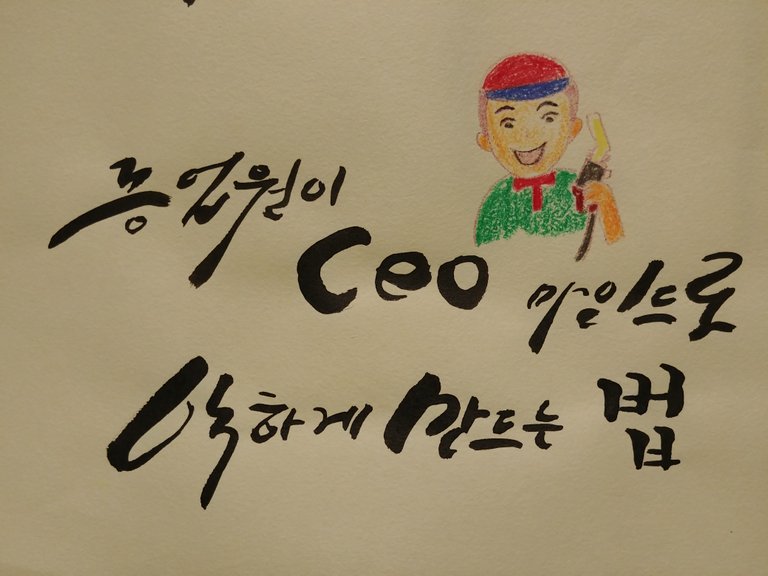 종업원이
Ceo 마인드로
일하게 만드는 법